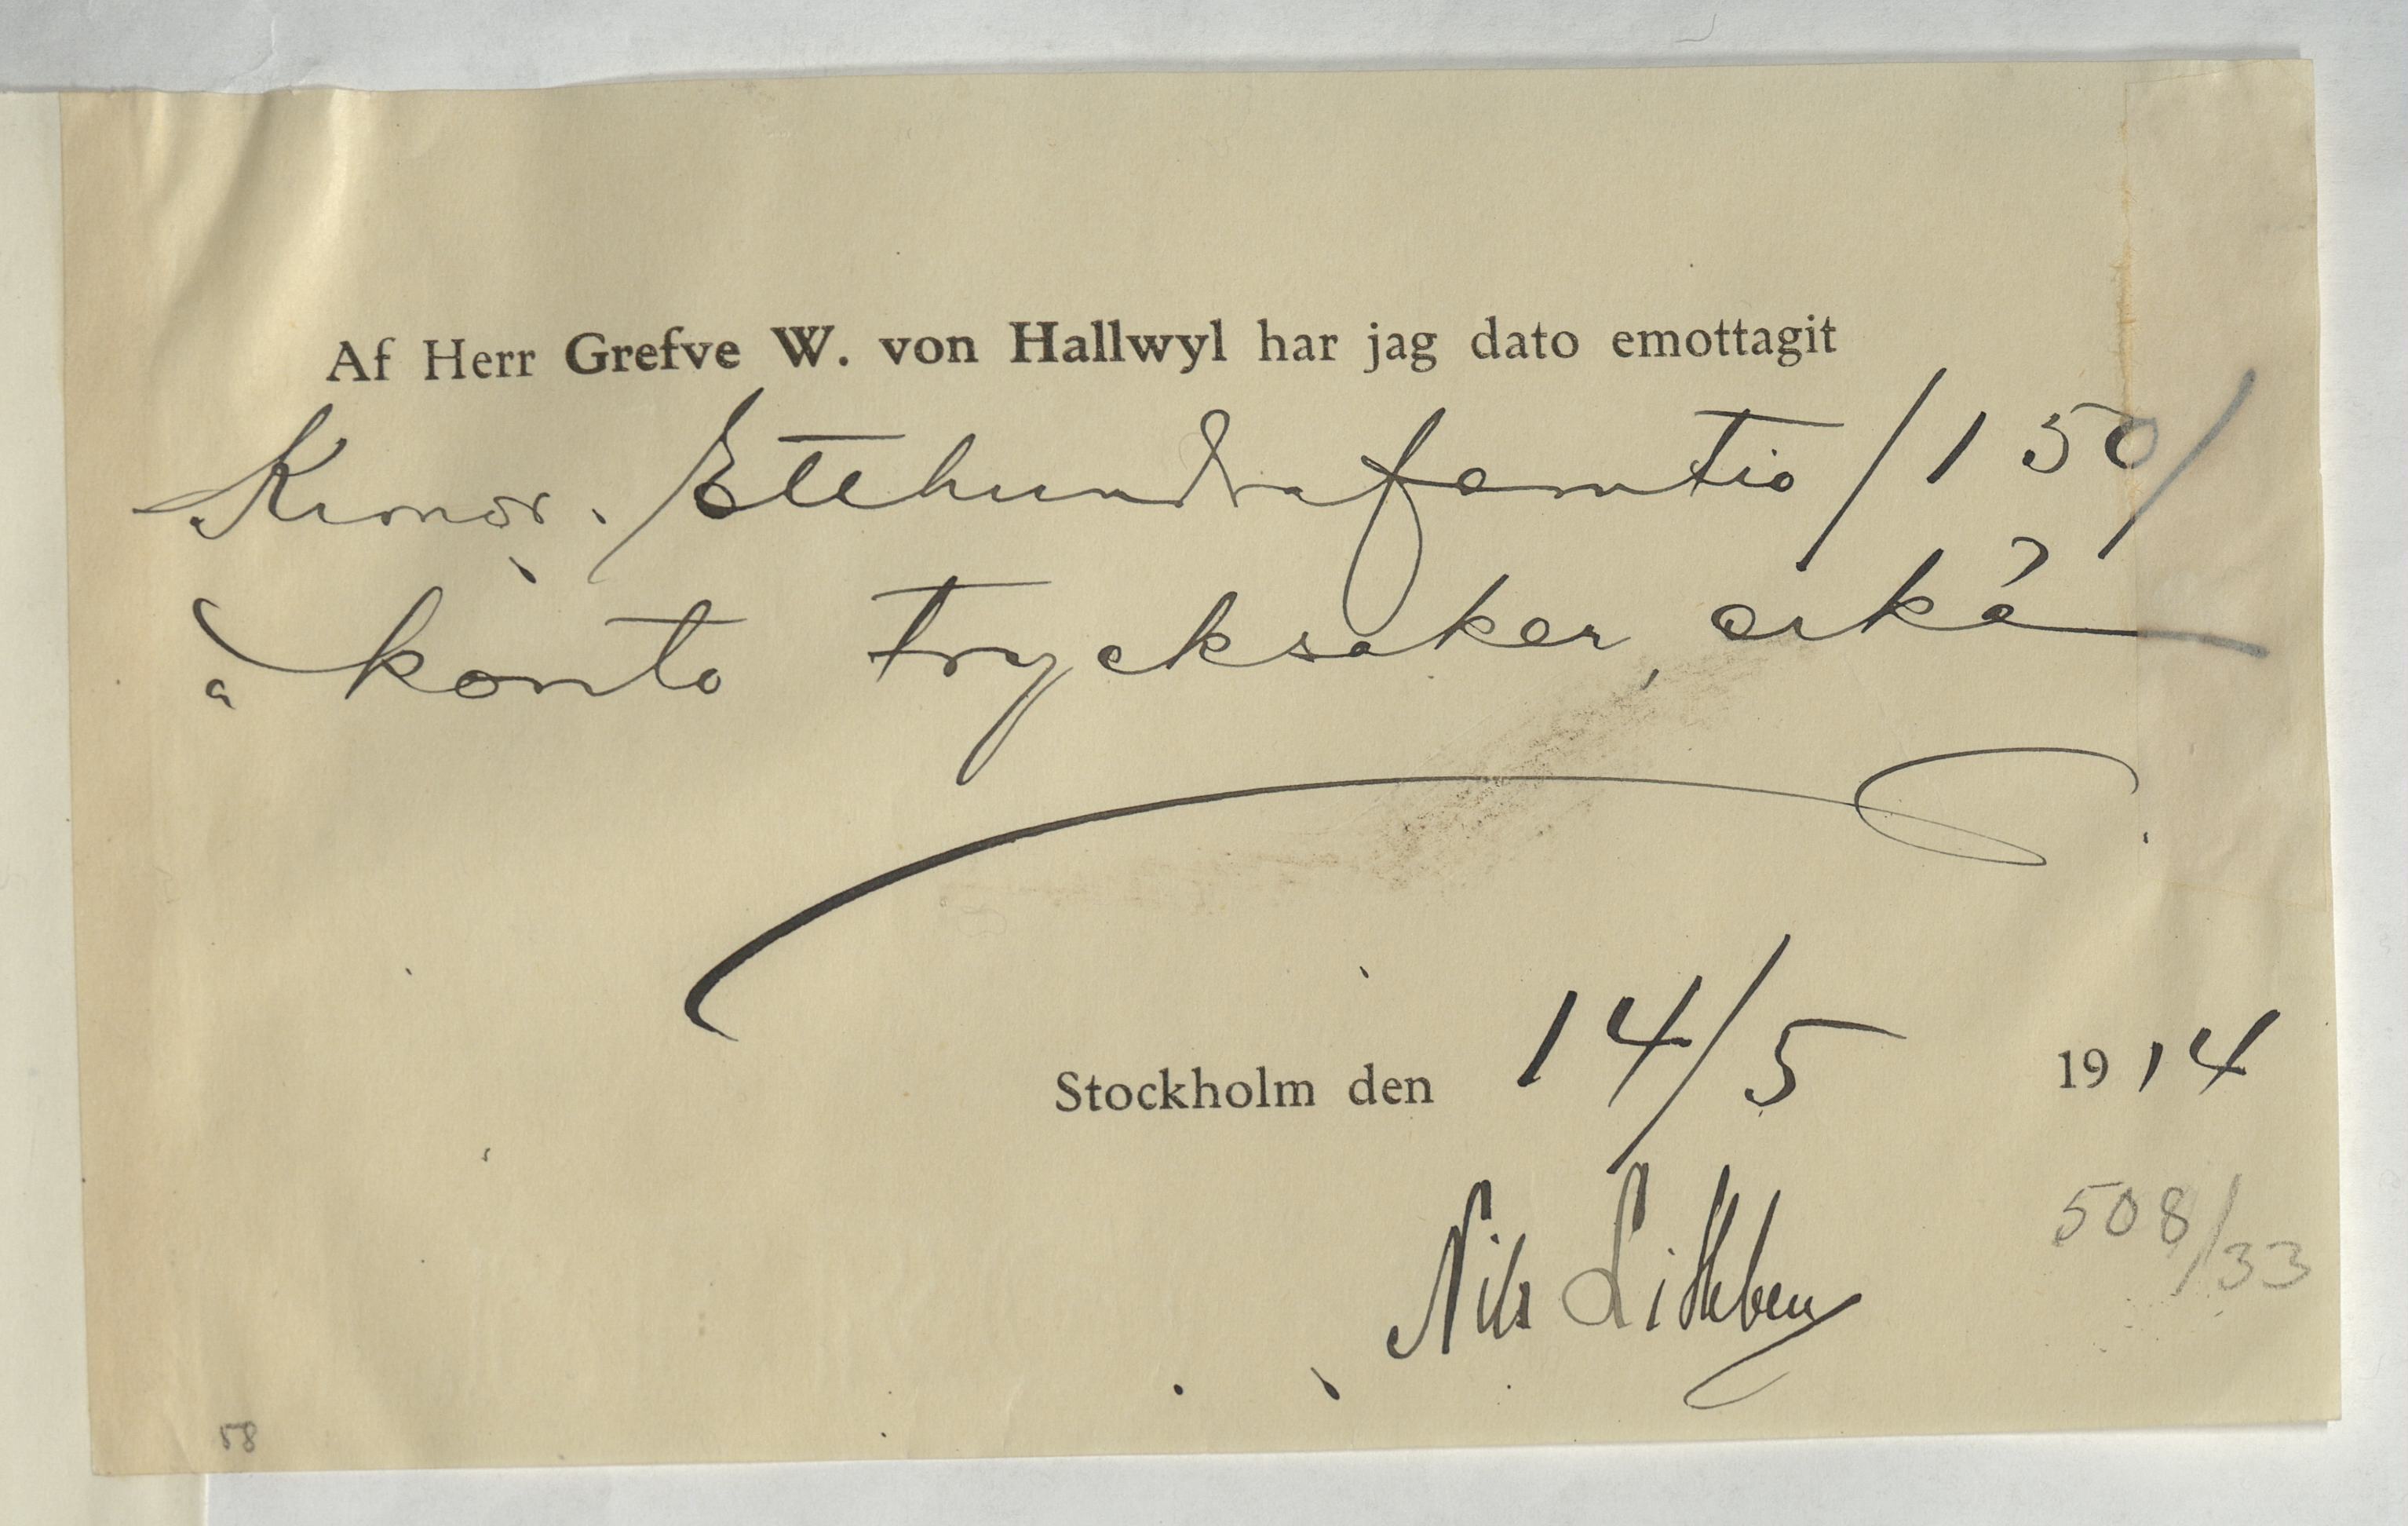 Af Herr Grefve W. von Hallwyl har jag dato emottagit
Kronor. Etthundrafemtio /150/
à konto trycksaker, arkå
Stockholm den 14/5 1914
508/33
Nils Lithberg
58